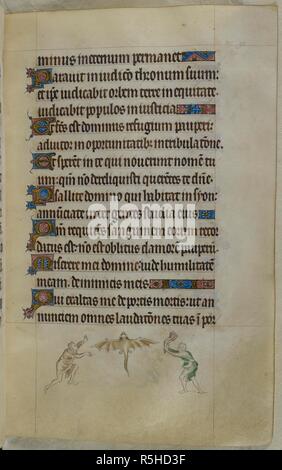 minus in eternum permanet
Parauit in iudicio thronum suum:
et ipse iudicabit orbem terre in equitate
iudicabit populos in iusticia
Et factus est dominus refugium pauperi
adiutor in oportunitatib; in tribulatione.
Et sperent in te qui nouerunt nomen tu
um: qm̄ non dereliquisti querentes te dn̄e.
Psallite domino qui habitat in syon:
annūciate inter gentes studia eius
Qm̄ requirens sanguinem eorum recor
datus est: non est oblitus clamorem pauperum.
Miserere mei domine: uide humilitatē
meam. de inimicis meis
Qui exaltas me de portis mortis: ut an
nunciem omnes laudationes tuas in por
alamy
Image ID: R5HD3F
www.alamy.com